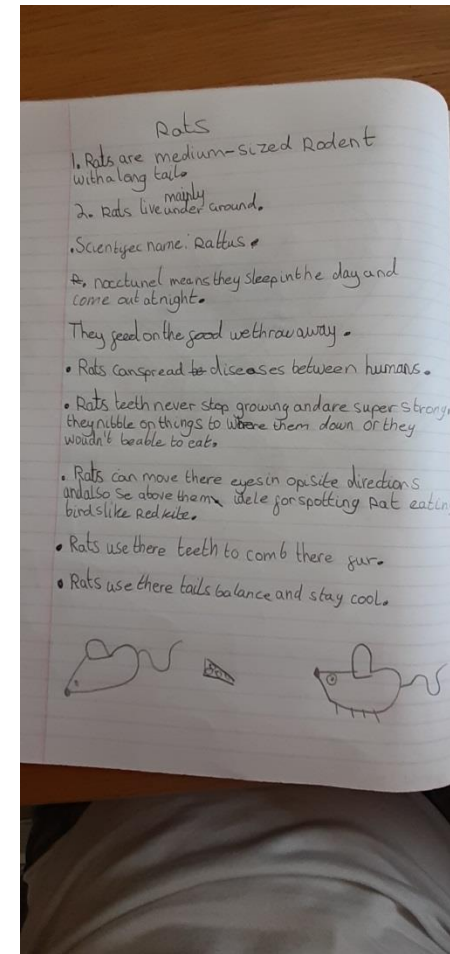 Rats
1. Rats are medium-sized Rodent
with a long tail.
mainly
2. Rats live under around.
• Scientyfec name: Rattus.
nocctunel means they sleep in the day and
come out at night.
They feed on the food we throw away.
• Rats can spread diseases between humans.
• Rats teeth never stop growing and are super strong
they nibble on things to where them down or they
woudn't be able to eat.
• Rats can move there eyes in opisite directions
and also se above them idele for spotting Rat eating
birds like Red kite.
• Rats use there teeth to comb there fur.
• Rats use there tails balance and stay cool.